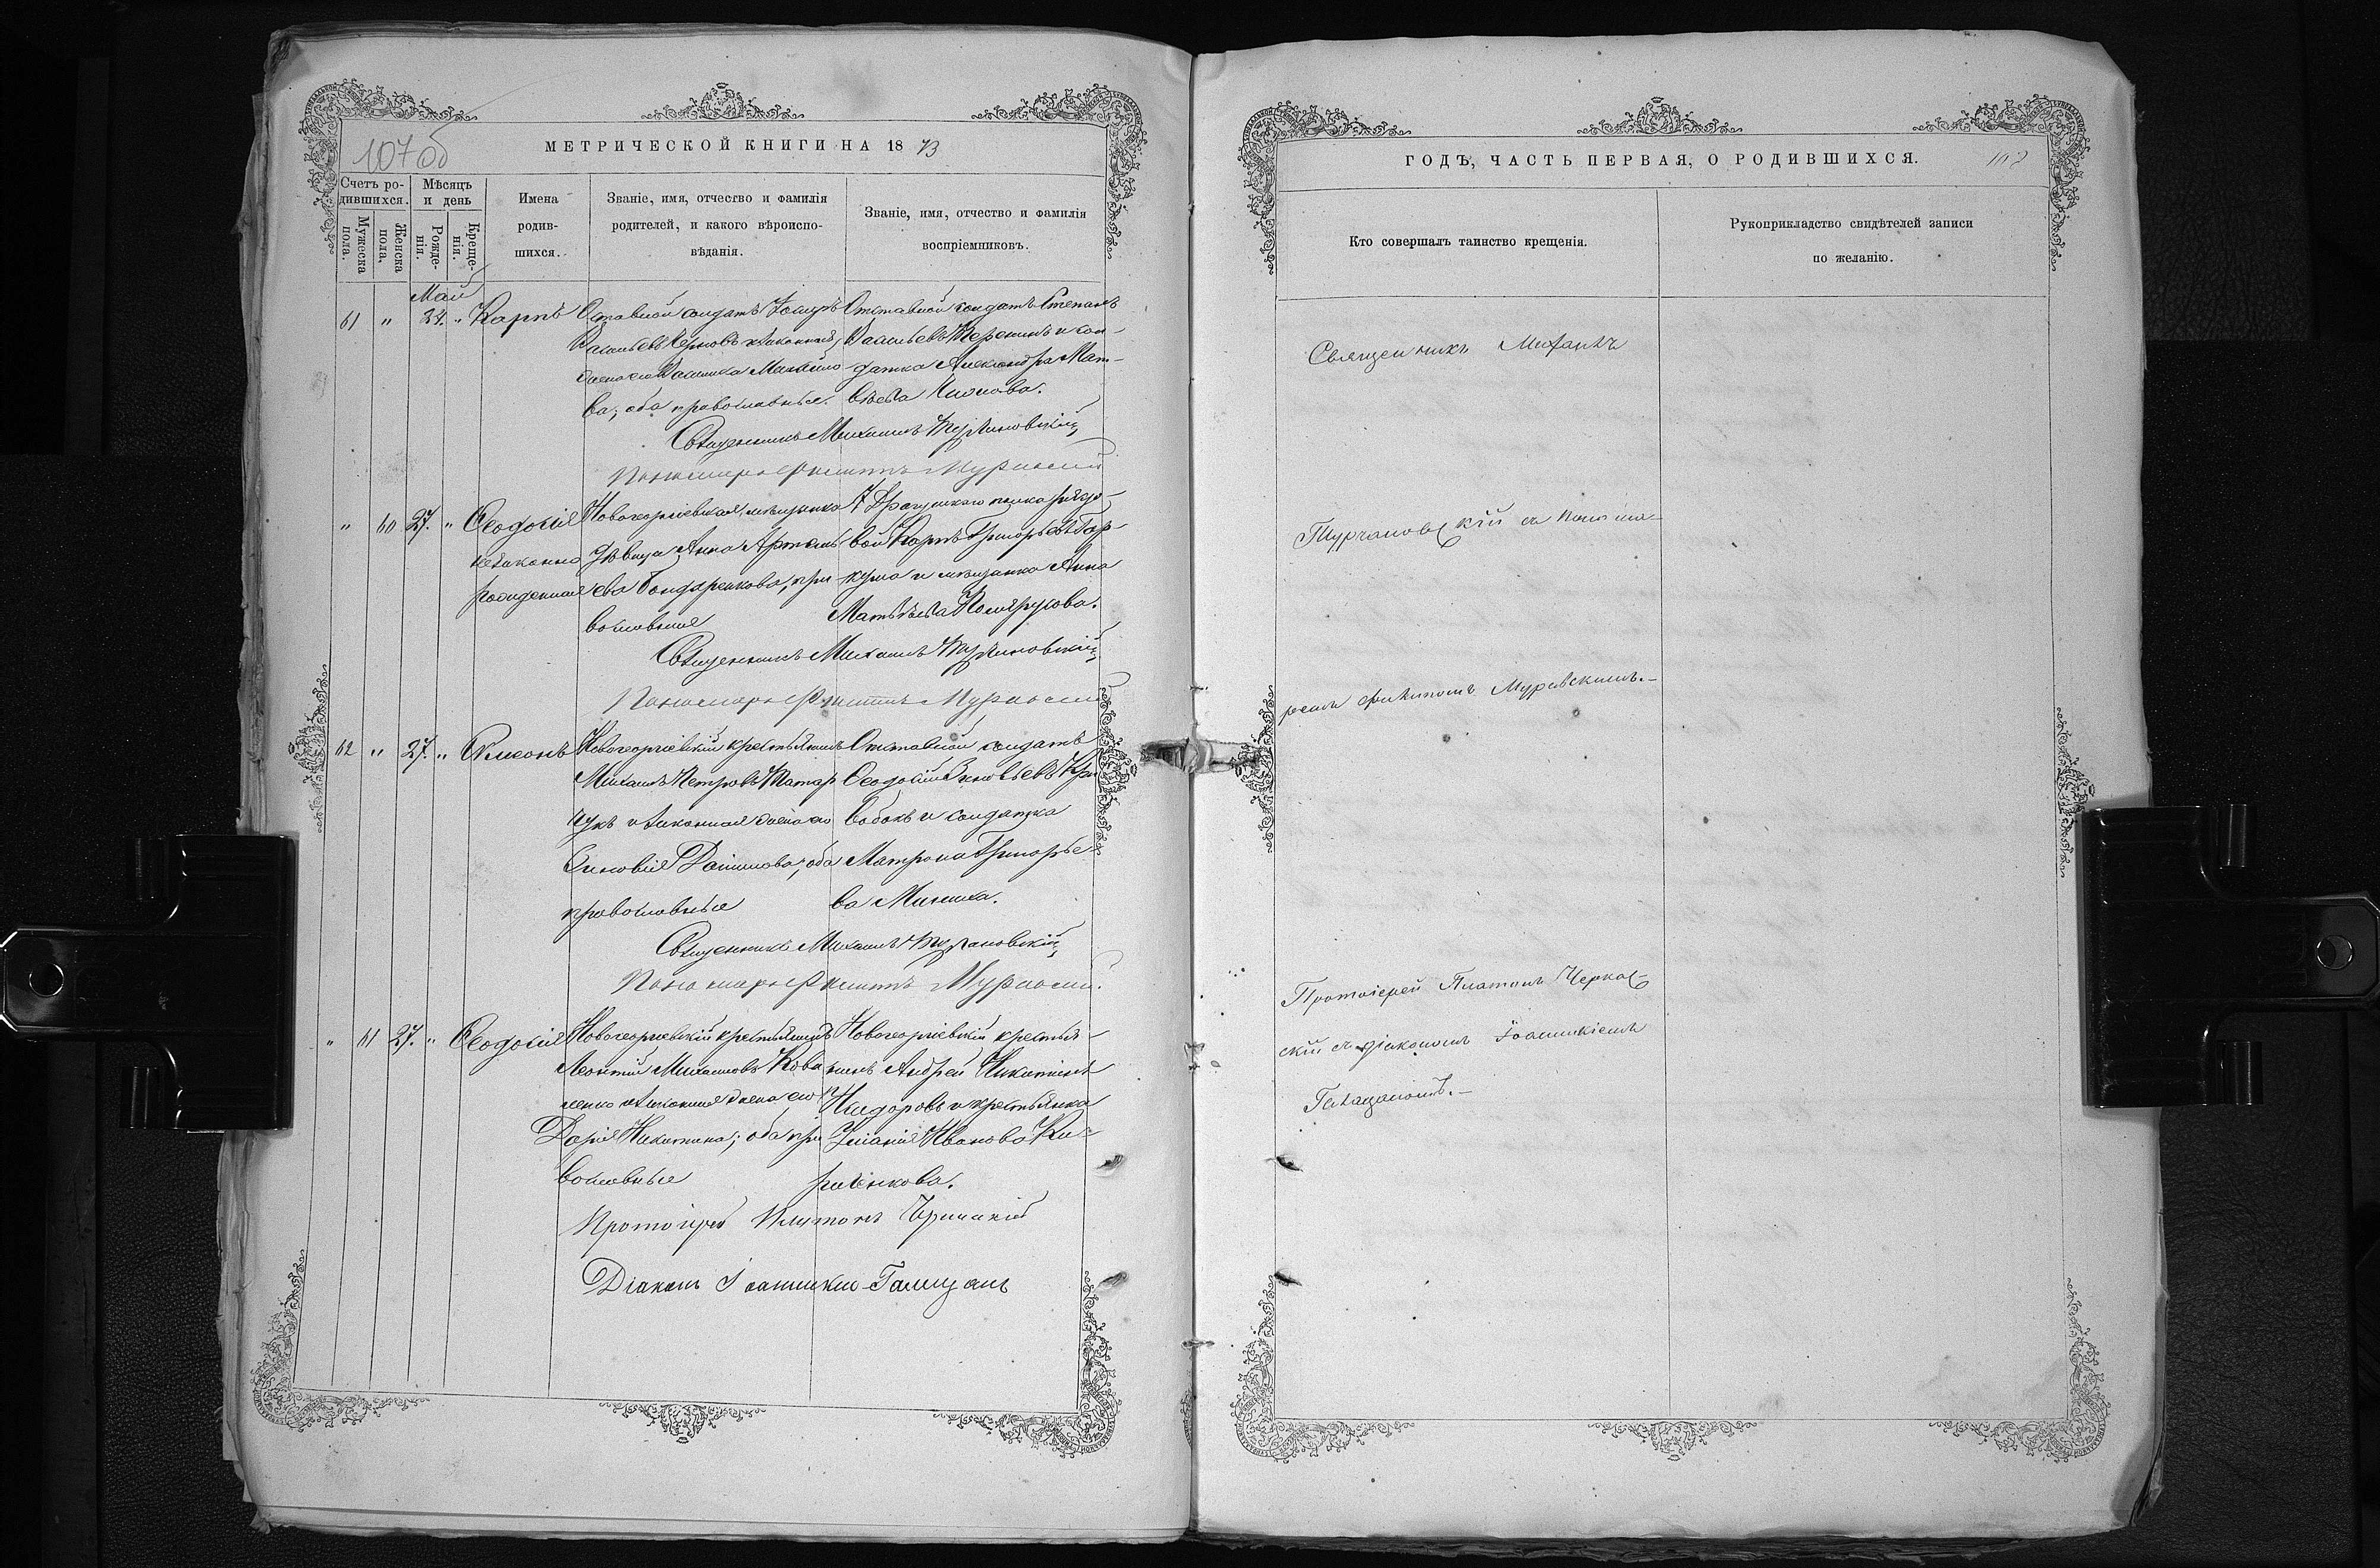 107 об
МЕТРИЧЕСКОЙ КНИГИ НА 18 73
Счетъ ро-
дившихся.
Мужеска
пола.
Женска
пола.
Мѣсяцъ
и день
Рожде-
нія.
Креще-
нія.
Имена
родив-
шихся.
Званіе, имя, отчество и фамилія
родителей, и какого вѣроиспо-
вѣданія.
Званіе, имя, отчество и фамилія
воспріемниковъ.
Май
61 " 24. " Карпъ
солдатъ
Васильевъ законная
ва, оба православные.
Отставной солдатъ Степанъ
Васильевъ и сол-
датка Александра Мат-
вѣева
Священникъ Михаилъ Турчановскій
Пономарь Филиппъ Муравскій
" 60 27. " Ѳеодосія
незаконно
рожденная
Новогеоргіевская мѣщанка
дѣвица Анна Артемь
ева Бондаренкова, пра
вославная
7 Драгунскаго полка рядо-
вой Карпъ Григорьевъ Гор-
куша и мѣщанка Анна
Матвѣева
Священникъ Михаилъ Турчановскій
Пономарь Филиппъ Муравскій
62 " 27. " Симеонъ
Новогеоргіевскій крестьянинъ
Михаилъ Петровъ Татар
чукъ и законная жена его
Зиновія Данилова, оба
православные
Отставной солдатъ
Ѳеодосій Зиновьевъ Кри
вобокъ и солдатка
Матрона Григорье-
ва
Священникъ Михаилъ Турчановскій
Пономарь Филиппъ Муравскій.
" 61 27. " Ѳеодосія
Новогеоргіевскій крестьянинъ
Леонтій Михаиловъ Кова
ленко и законная жена его
Дарія Никитина; оба пра
вославные
Новогеоргіевскій крестья-
нинъ Андрей Никитинъ
и крестьянка
Уліанія Иванова Ки-
риленкова.
Протоіерей Платонъ Черкаскій
Діаконъ Іоанникій Галаганъ
ГОДЪ, ЧАСТЬ ПЕРВАЯ, О РОДИВШИХСЯ.
Кто совершалъ таинство крещенія.
Рукоприкладство свидѣтелей записи
по желанію.
Священникъ Михаилъ
Турчановскій съ понома-
ремъ Филипомъ Муравскимъ.-
Протоіерей Платонъ Черка-
скій съ діакономъ Іоанникіемъ
Галаганомъ.-